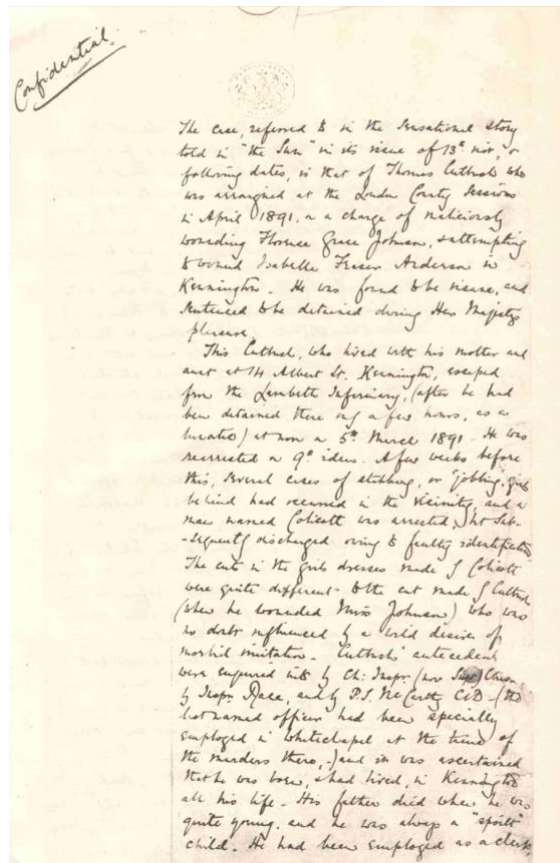 Confidential.
The case, referred to in the sensational story
told in "the Sun" in its issue of 13th inst, &
following dates, is that of Thomas Cutbush who
was arraigned at the London County Sessions
in April 1891, on a charge of maliciously
wounding Florence Grace Johnson, & attempting
to wound Isabelle Fraser Anderson in
Kennington. He was found to be insane, and
sentenced to be detained during Her Majesty's
pleasure.
This Cutbush, who lived with his mother and
aunt at 14 Albert St. Kennington, escaped
from the Lambeth Infirmary, (after he had
been detained there only a few hours, as a
lunatic) at noon on 5th March 1891. He was
rearrested on 9th idem. A few weeks before
this, several cases of stabbing, or "jobbing", girls
behind had occurred in the vicinity, and a
man named Colicott was arrested, but sub-
-sequently discharged owing to faulty identification.
The cuts in the girls dresses made by Colicott
were quite different to the cut made by Cutbush
(when he wounded Miss Johnson) who was
no doubt influenced by a wild desire of
morbid imitation. Cutbush's antecedents
were enquired into by Ch: Inspr. (now Supt.)
by Inspr. Race, and by P.S. McCarthy C.I.D. - (the
last named officer had been specially
employed in Whitechapel at the time of
the murders there,) and it was ascertained
that he was born, & had lived, in Kennington
all his life. His father died when he was
quite young, and he was always a "spoilt"
child. He had been employed as a clerk